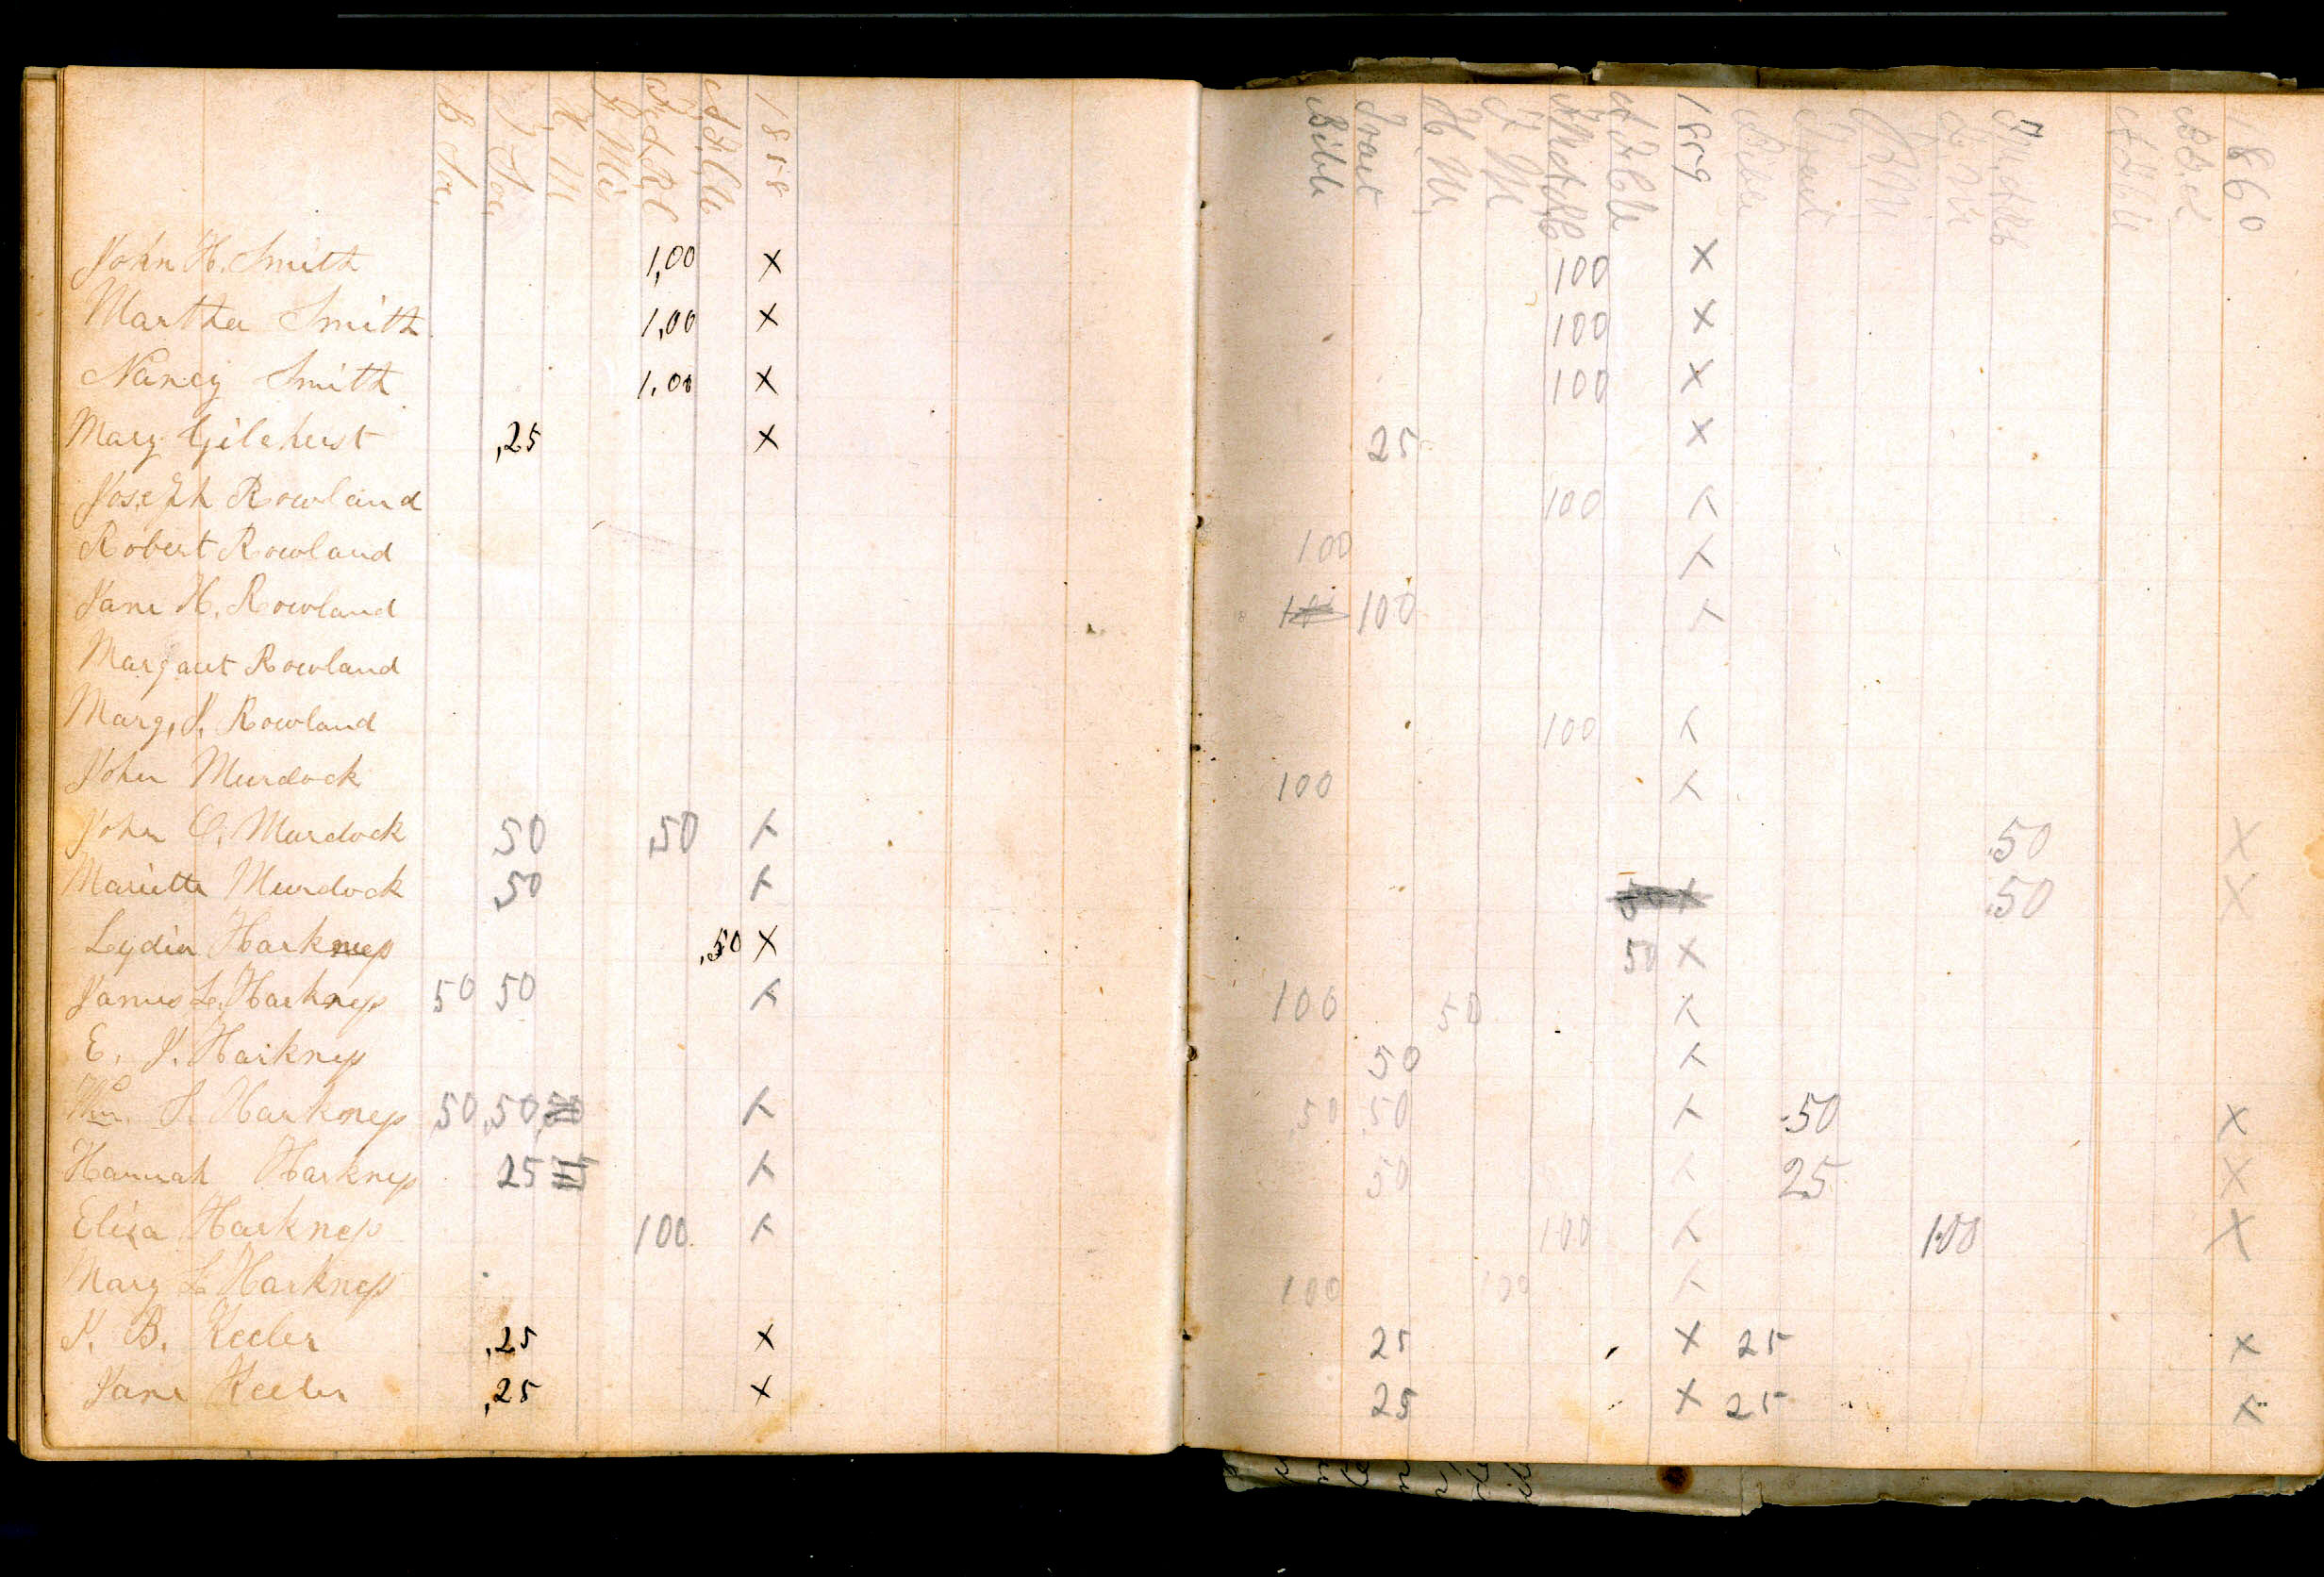 B. Soc. T. Soc H. M F. Mis F. & R. C A. F. C. U. 1858 Bible Tract H. M. F. M A. F. C. U 1859 Bible Tract H M F. M A F C U 1860
John H. Smith 1,00 X 100 X
Martha Smith 1,00 X 100 X
Nancy Smith 1,00 X 100 X
Mary Gilcherst ,25 X 25 X
Joseph Rowland 100 X
Robert Rowland 100 X
Jane H. Rowland 100 100 X
Margaret Rowland
Marg, J. Rowland 100 X
John Murdock 100 X
John C. Murdock 50 50 X .50 X
Marietta Murdock 50 X 50 X .50 X
Lydia Harkness ,50 X 50 X
James L. Harkness 50 50 X 100 50 X
E. J. Harkness 50 X
Wm. S. Harkness 50 ,50 ,50 X 50 50 X .50 X
Hannah Harkness 25 X 50 X 25 X
Eliza Harkness 100 X 100 X 1.00 X
Mary L Harkness 100 100 X
J. B. Keeler ,25 X 25 X 25 X
Jane Keeler ,25 X 25 X 25 X